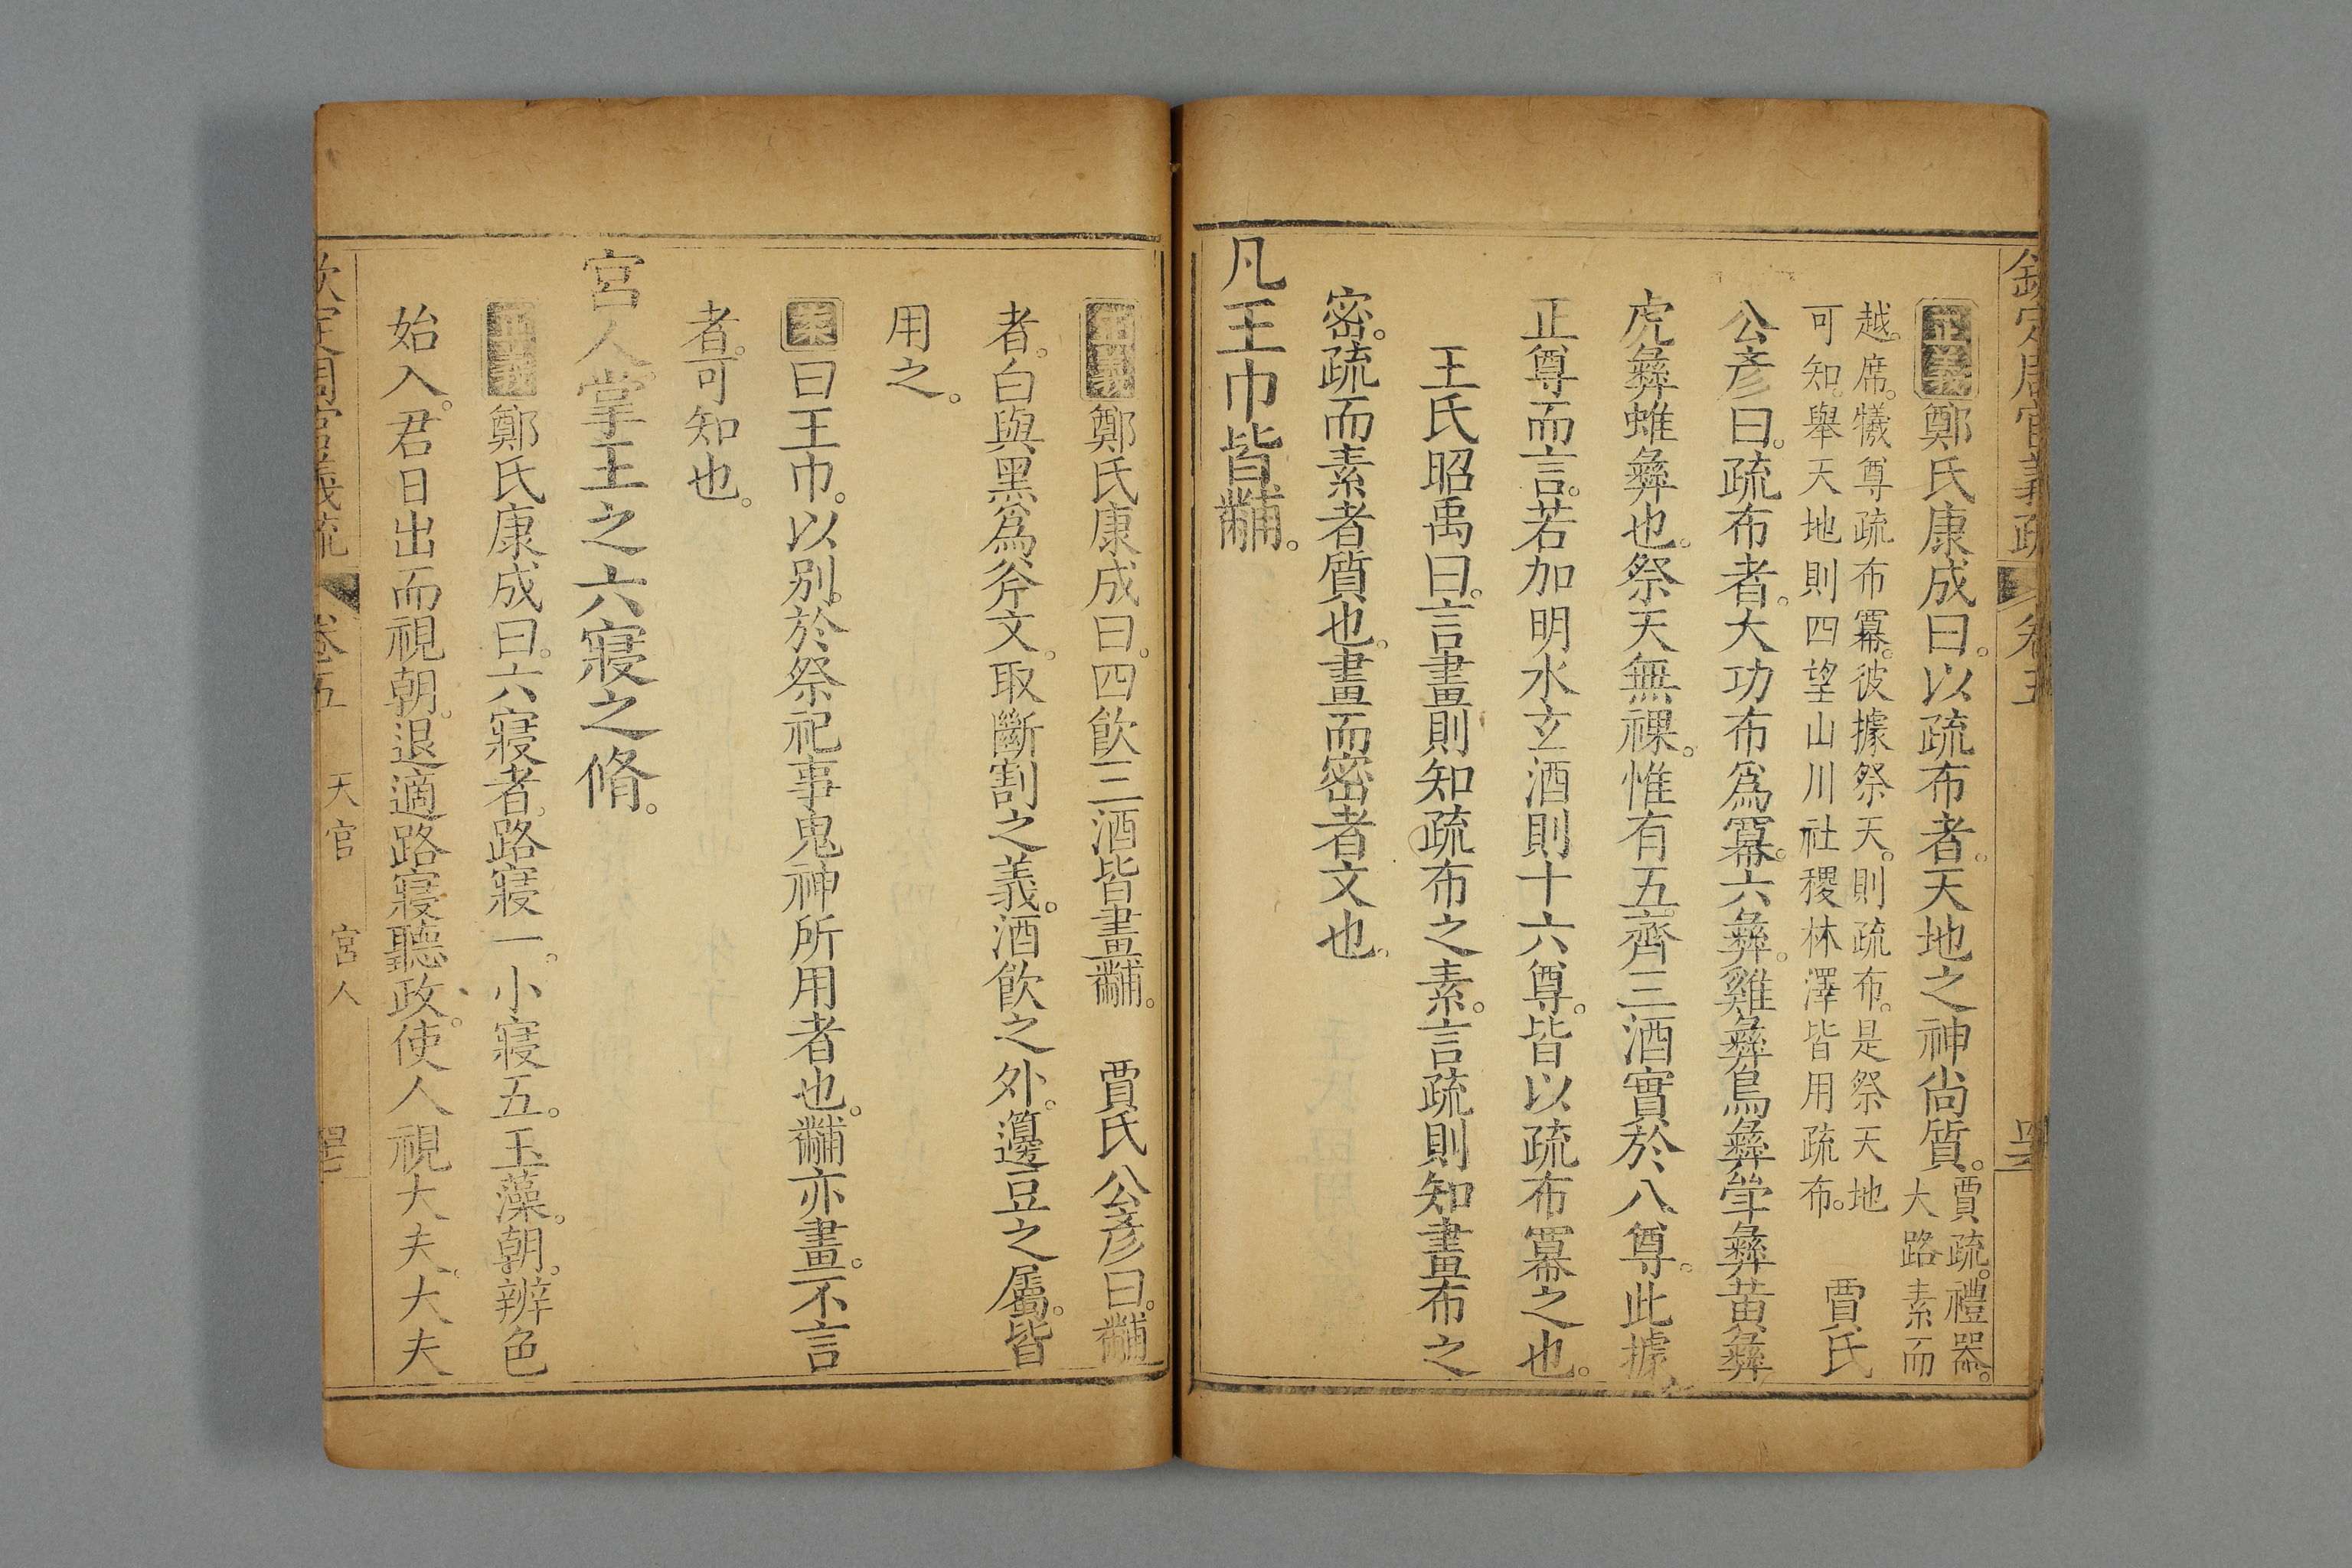 欽定周官義疏 卷五
正義鄭氏康成曰。以疏布者。天地之神尚質。賈疏。禮器。大路素而
越。席。犧尊疏布幂。彼據祭天。則疏布。是祭天地
可知。舉天地則四望山川社稷林澤皆用疏布。 賈氏
公彦曰。疏布者。大功布爲幂。六彝。雞彝鳥彝斝彝黃彝
虎彝蜼彝也。祭天無祼。惟有五齊三酒實於八尊。此據
正尊而言。若加明水玄酒則十六尊。皆以疏布幂之也。
王氏昭禹曰。言畫則知疏布之素。言疏則知畫布之
密。疏而素者質也。畫而密者文也。
凡王巾皆黼。
正義鄭氏康成曰。四飲三酒皆畫黼。 賈氏公彦曰。黼
者。白與黑爲斧文。取斷割之義。酒飲之外。籩豆之屬。皆
用之。
案曰王巾。以别於祭祀事鬼神所用者也。黼亦畫。不言
者。可知也。
宮人掌王之六寢之脩。
正義鄭氏康成曰。六寢者。路寢一。小寢五。玉藻。朝。辨色
始入。君日出而視朝。退適路寢聽政。使人視大夫。大夫
欽定周官義疏 卷五 天官 宮人